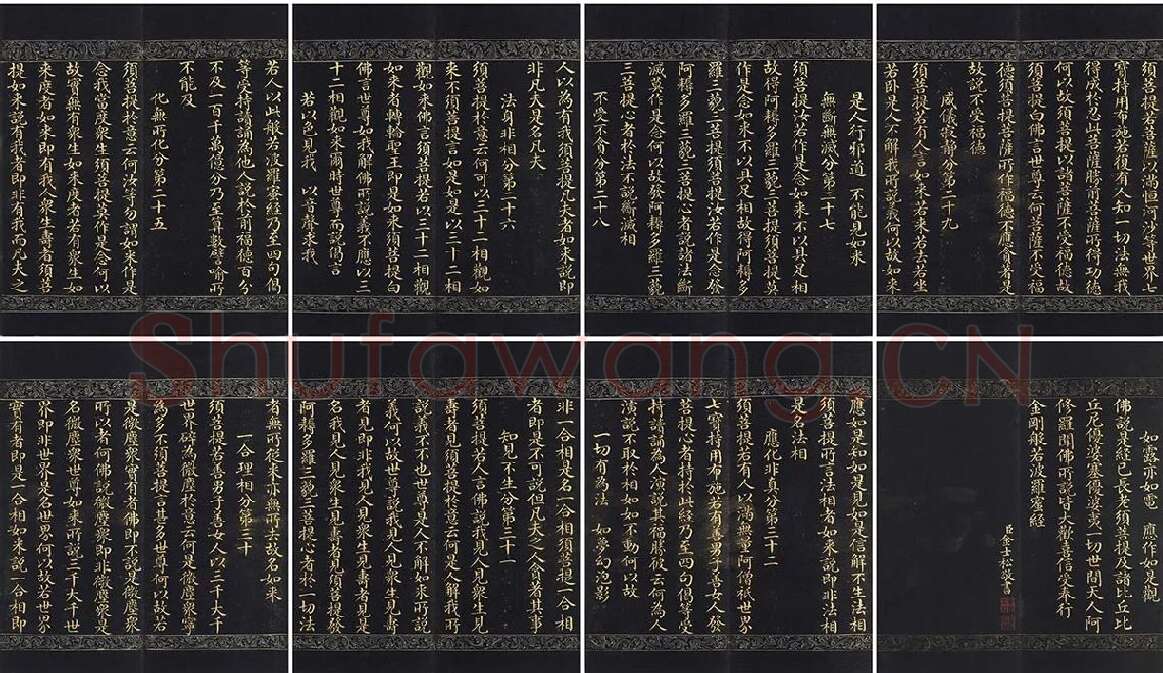 若人以此般若波羅蜜經乃至四句偈
等受持讀誦為他人說於前福德百分
不及一百千萬億分乃至算數譬喻所
不能及
化無所化分第二十五
須菩提於意云何汝等勿謂如來作是
念我當度衆生須菩提莫作是念何以
故實無有衆生如來度者若有衆生如
來度者如來即有我人衆生壽者須菩
提如來說有我者即非有我而凡夫之
人以為有我須菩提凡夫者如來說即
非凡夫是名凡夫
法身非相分第二十六
須菩提於意云何可以三十二相觀如
來不須菩提言如是如是以三十二相
觀如來佛言須菩提若以三十二相觀
如來者轉輪聖王即是如來須菩提白
佛言世尊如我解佛所說義不應以三
十二相觀如來爾時世尊而說偈言
若以色見我 以音聲求我
是人行邪道 不能見如來
無斷無滅分第二十七
須菩提汝若作是念如來不以具足相
故得阿耨多羅三藐三菩提須菩提莫
作是念如來不以具足相故得阿耨多
羅三藐三菩提須菩提汝若作是念發
阿耨多羅三藐三菩提心者說諸法斷
滅莫作是念何以故發阿耨多羅三藐
三菩提心者於法不說斷滅相
不受不貪分第二十八
須菩提若菩薩以滿恒河沙等世界七
寶持用布施若復有人知一切法無我
得成於忍此菩薩勝前菩薩所得功德
何以故須菩提以諸菩薩不受福德故
須菩提白佛言世尊云何菩薩不受福
德須菩提菩薩所作福德不應貪著是
故說不受福德
威儀寂靜分第二十九
須菩提若有人言如來若來若去若坐
若卧是人不解我所說義何以故如來
者無所從來亦無所去故名如來
一合理相分第三十
須菩提若善男子善女人以三千大千
世界碎為微塵於意云何是微塵衆寧
為多不須菩提言甚多世尊何以故若
是微塵衆實有者佛即不說是微塵衆
所以者何佛說微塵衆即非微塵衆是
名微塵衆世尊如來所說三千大千世
界即非世界是名世界何以故若世界
實有者即是一合相如來說一合相即
非一合相是名一合相須菩提一合相
者即是不可說但凡夫之人貪著其事
知見不生分第三十一
須菩提若人言佛說我見人見衆生見
壽者見須菩提於意云何是人解我所
說義不不也世尊是人不解如來所說
義何以故世尊說我見人見衆生見壽
者見即非我見人見衆生見壽者見是
名我見人見衆生見壽者見須菩提發
阿耨多羅三藐三菩提心者於一切法
應如是知如是見如是信解不生法相
須菩提所言法相者如來說即非法相
是名法相
應化非真分第三十二
須菩提若有人以滿無量阿僧祇世界
七寶持用布施若有善男子善女人發
菩提心者持於此經乃至四句偈等受
持讀誦為人演說其福勝彼云何為人
演說不取於相如如不動何以故
一切有為法 如夢幻泡影
如露亦如電 應作如是觀
佛說是經已長老須菩提及諸比丘比
丘尼優婆塞優婆夷一切世間天人阿
修羅聞佛所說皆大歡喜信受奉行
金剛般若波羅蜜經
臣金士松敬書
Shufawang.CN